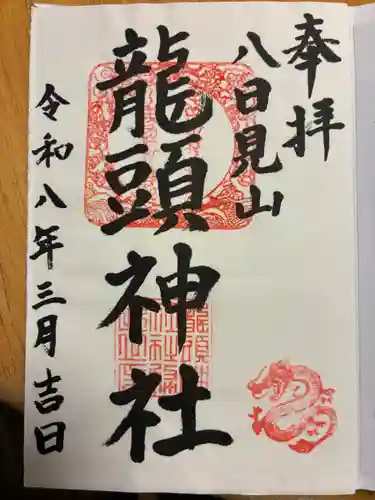 奉拝
八日見山
龍頭神社
令和八年三月吉日